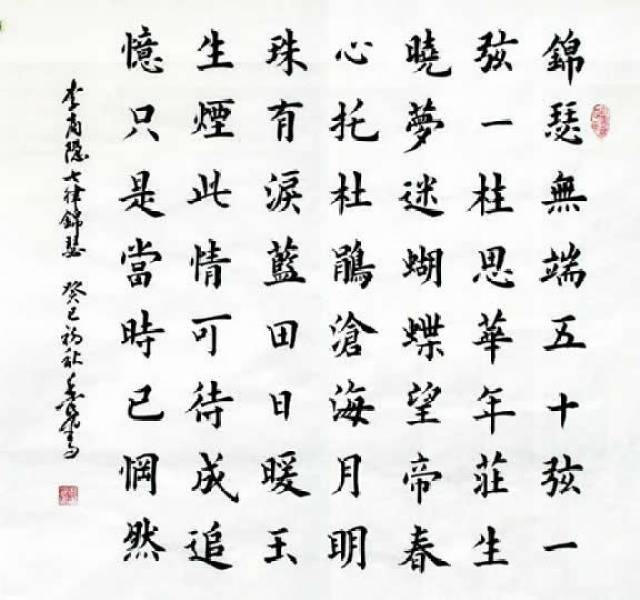 錦瑟無端五十弦一
弦一桂思華年莊生
曉夢迷蝴蝶望帝春
心托杜鵑滄海月明
珠有淚藍田日暖玉
生煙此情可待成追
憶只是當時已惘然
李商隐七律錦瑟 癸巳初秋